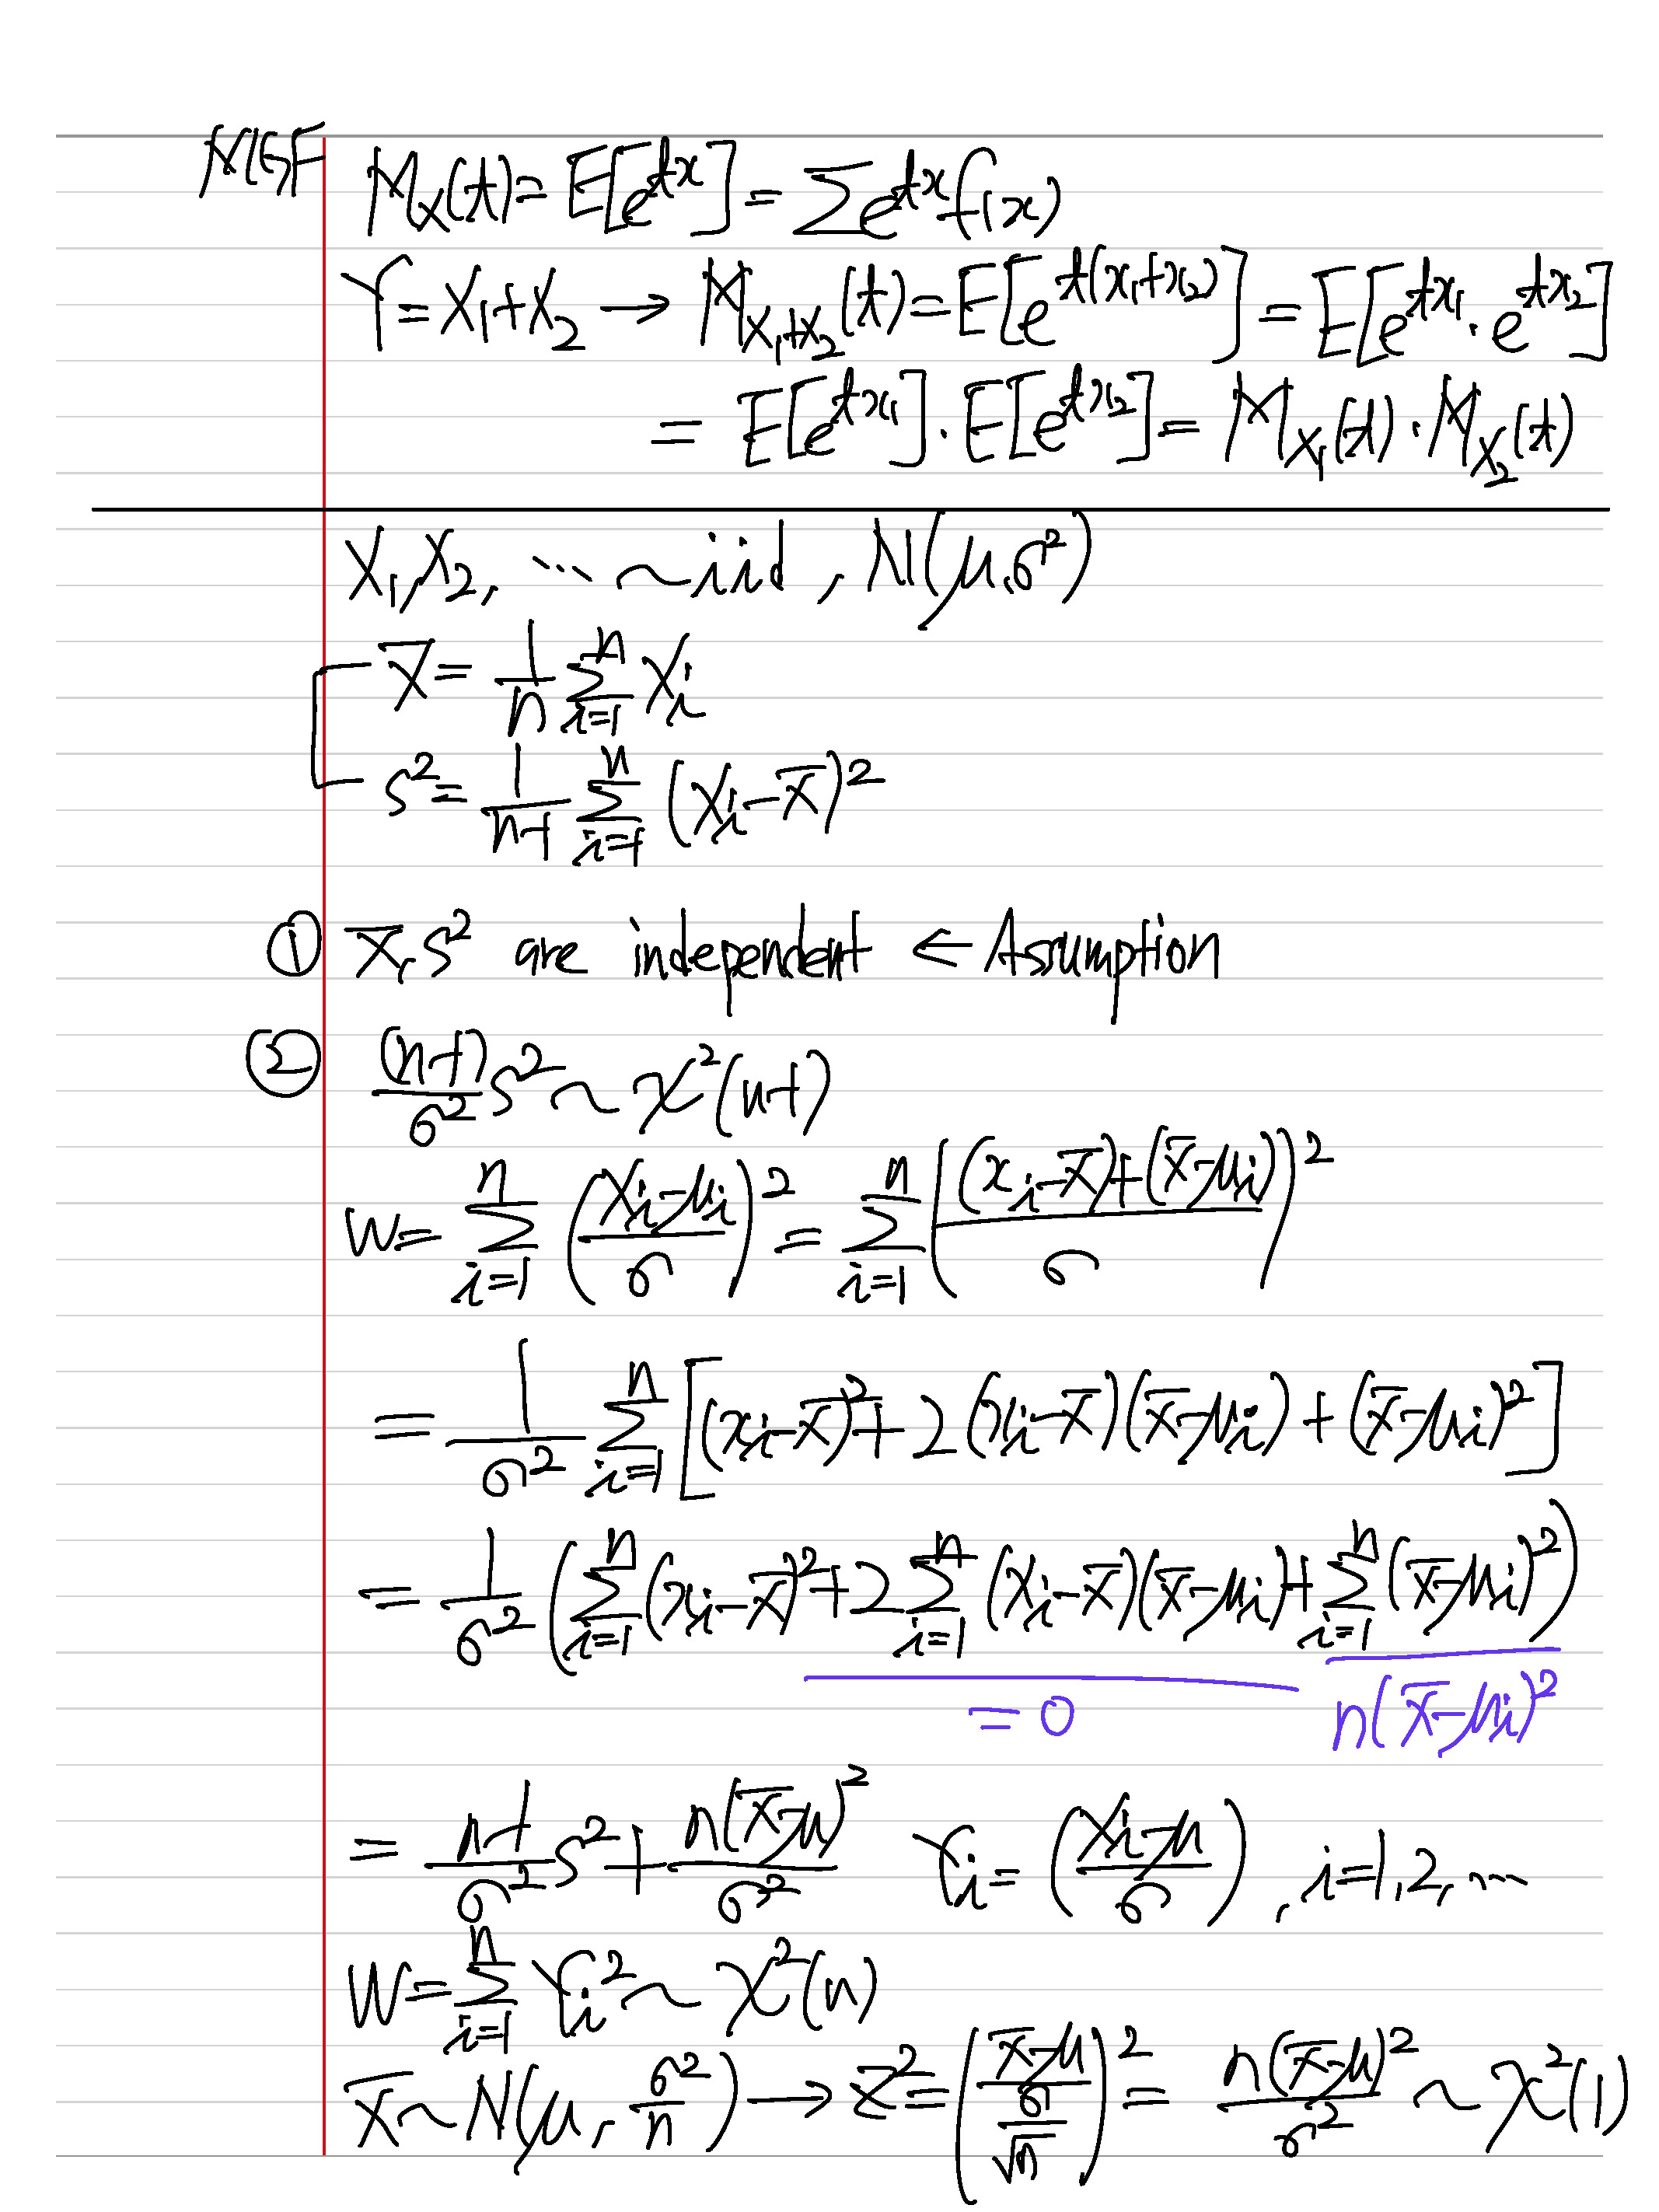 MGF
M_X(t) = E[e^{tx}] = Σe^{tx}f(x)
Y = X₁+X₂ → M_{X₁+X₂}(t) = E[e^{t(x₁+x₂)}] = E[e^{tx₁}·e^{tx₂}]
= E[e^{tx₁}]·E[e^{tx₂}] = M_{X₁}(t)·M_{X₂}(t)
X₁, X₂, ⋯ ~ iid, N(μ, σ²)
X̄ = \frac{1}{n} \sum_{i=1}^{n} X_i
s² = \frac{1}{n-1} \sum_{i=1}^{n} (X_i - X̄)²
① X̄, s² are independent ← Assumption
② \frac{(n-1)}{σ²} s² ~ χ²(n-1)
W = \sum_{i=1}^{n} (\frac{X_i - μ_i}{σ})² = \sum_{i=1}^{n} (\frac{(x_i - x̄) + (x̄ - μ_i)}{σ})²
= \frac{1}{σ²} \sum_{i=1}^{n} [(x_i - x̄)² + 2(x_i - x̄)(x̄ - μ_i) + (x̄ - μ_i)²]
= \frac{1}{σ²} (\sum_{i=1}^{n} (x_i - x̄)² + 2\sum_{i=1}^{n} (x_i - x̄)(x̄ - μ_i) + \sum_{i=1}^{n} (x̄ - μ_i)²)
= 0 n(x̄ - μ_i)²
= \frac{n-1}{σ²} s² + \frac{n(x̄ - μ)²}{σ²} Y_i = (\frac{X_i - μ}{σ}), i=1,2,⋯
W = \sum_{i=1}^{n} Y_i² ~ χ²(n)
X̄ ~ N(μ, \frac{σ²}{n}) → Z² = (\frac{x̄ - μ}{\frac{σ}{\sqrt{n}}})² = \frac{n(x̄ - μ)²}{σ²} ~ χ²(1)